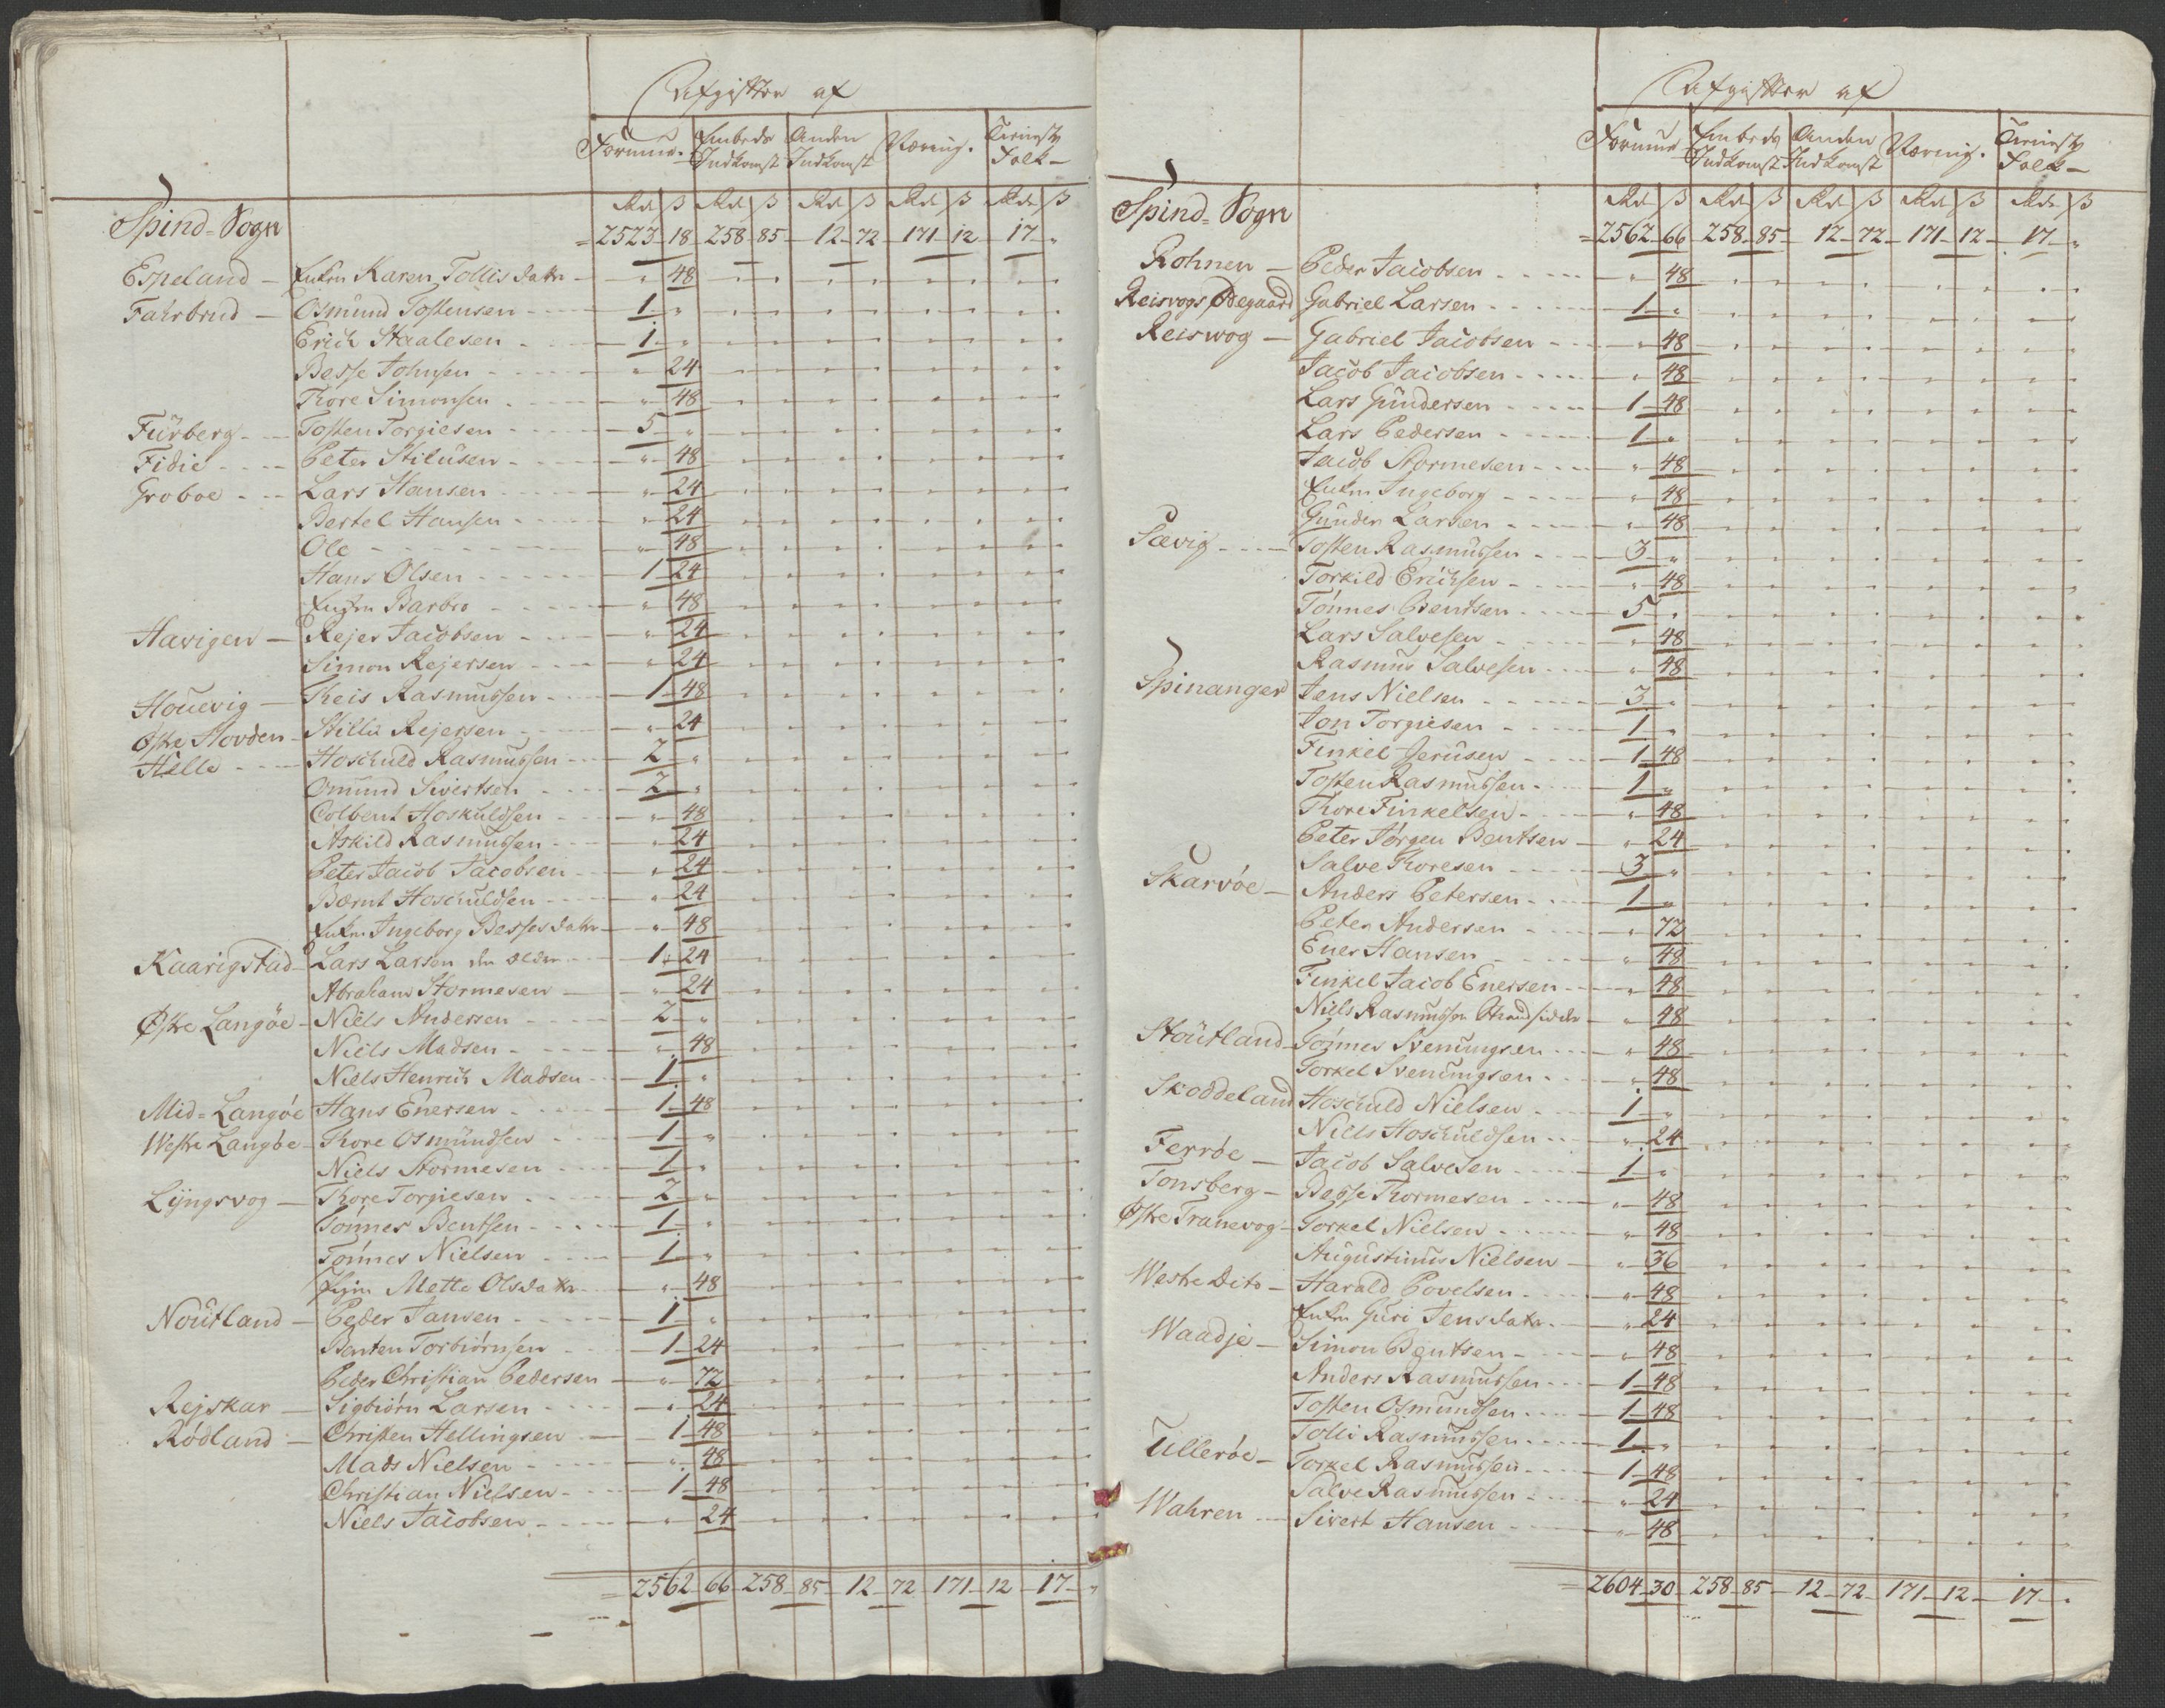 Afgifter af
Formue. Embeds Indkomst Anden Indkomst Næring. Tienist Folk
Rd ß Rd ß Rd ß Rd ß Rd ß
Spind-Sogn = 2523 18 258 85 12 72 171 12 17 "
Espeland Enken Karen Tollis dattr " 48
Fahrbrud Osmund Tostensen 1 "
Erich Staalesen 1 "
Besse Johnsen " 24
Thore Simonsen " 48
Furberg Tosten Torgiesen 5 "
Fidie Peter Stilusen " 48
Groboe Lars Hansen " 24
Bertel Hansen " 24
Ole " 48
Hans Olsen 1 24
Enken Barbro " 48
Havigen Rejer Jacobsen " 24
Simon Rejersen " 24
Houevig Theis Rasmussen 1 48
Østre Hovden Stillu Rejersen " 24
Helle Hoschuld Rasmussen 2 "
Omund Sivertsen 2 "
Colbent Hoskuldsen " 48
Askild Rasmussen " 24
Peter Jacob Jacobsen " 24
Bærnt Hoschuldsen " 24
Enken Ingeborg Besses dattr " 48
Kaarigstad Lars Larsen den Ælder 1 24
Abraham Stormesen " 24
Østre Langöe Niels Andersen 2 "
Niels Madsen " 48
Niels Henrich Madsen 1 "
Mid-Langöe Hans Enersen 1 48
Westre Langöe Thore Osmundsen 1 "
Niels Stormesen 1 "
Lyngsvog Thore Torgiesen 2 "
Tönnes Bentsen 1 "
Tönnes Nielsen 1 "
Mette Olsdattr " 48
Noutland Peder Jansen 1 "
Benten Torbiörnsen 1 24
Peder Christian Pedersen " 72
Rejskar Sigbiörn Larsen " 24
Rödland Christen Hellingsen 1 48
Mads Nielsen " 48
Christian Nielsen 1 48
Niels Jacobsen " 24
= 2562 66 258 85 12 72 171 12 17 "
Afgifter af
Formue Embeds Indkomst Anden Indkomst Nærnig. Tienist Folk
Rd ß Rd ß Rd ß Rd ß Rd ß
Spind-Sogn = 2562 66 258 85 12 72 171 12 17 "
Rohnen Peder Jacobsen " 48
Reisvogs Ødegaard Gabriel Larsen 1 "
Reiswog Gabriel Jacobsen " 48
Jacob Jacobsen " 48
Lars Gundersen 1 48
Lars Pedersen 1 "
Jacob Stormesen " 48
Enken Ingeborg " 48
Gunder Larsen " 48
Sævig Tosten Rasmussen 3 "
Torkild Erichsen " 48
Tönnes Bentsen 5 "
Lars Salvesen " 48
Rasmus Salvesen " 48
Spinanger Jens Nielsen 3 "
Jon Torgiesen 1 "
Finkel Jerusen 1 48
Tosten Rasmussen 1 "
Thore Finkelsen " 48
Peter Jörgen Bentsen " 24
Salve Thoresen 3 "
Skarvöe Anders Petersen 1 "
Peter Andersen " 72
Ener Hansen " 48
Finkel Jacob Enersen " 48
Niels Rasmussen Strandsidder " 48
Stoutland Tönnes Svenungsen " 48
Torkel Svenungsen " 48
Skoddeland Hoschuld Nielsen 1 "
Niels Hoschuldsen " 24
Ferröe Jacob Salvesen 1 "
Tonsberg Besse Thormesen " 48
Østre Tranevog Torkel Nielsen " 48
Augustinus Nielsen " 36
Westre Dito Harald Povelsen " 48
Enken Guri Jensdattr " 24
Waadje Simon Bentsen " 48
Anders Rasmussen 1 48
Tosten Osmundsen 1 48
Tolli Rasmussen 1 "
Ulleröe Torkel Rasmussen 1 48
Salve Rasmussen " 24
Wahren Sivert Hansen " 48
= 2604 30 258 85 12 72 171 12 17 "